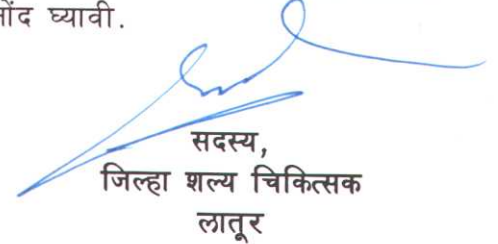 घ्यावी.
सदस्य,
जिल्हा शल्य चिकित्सक
लातूर